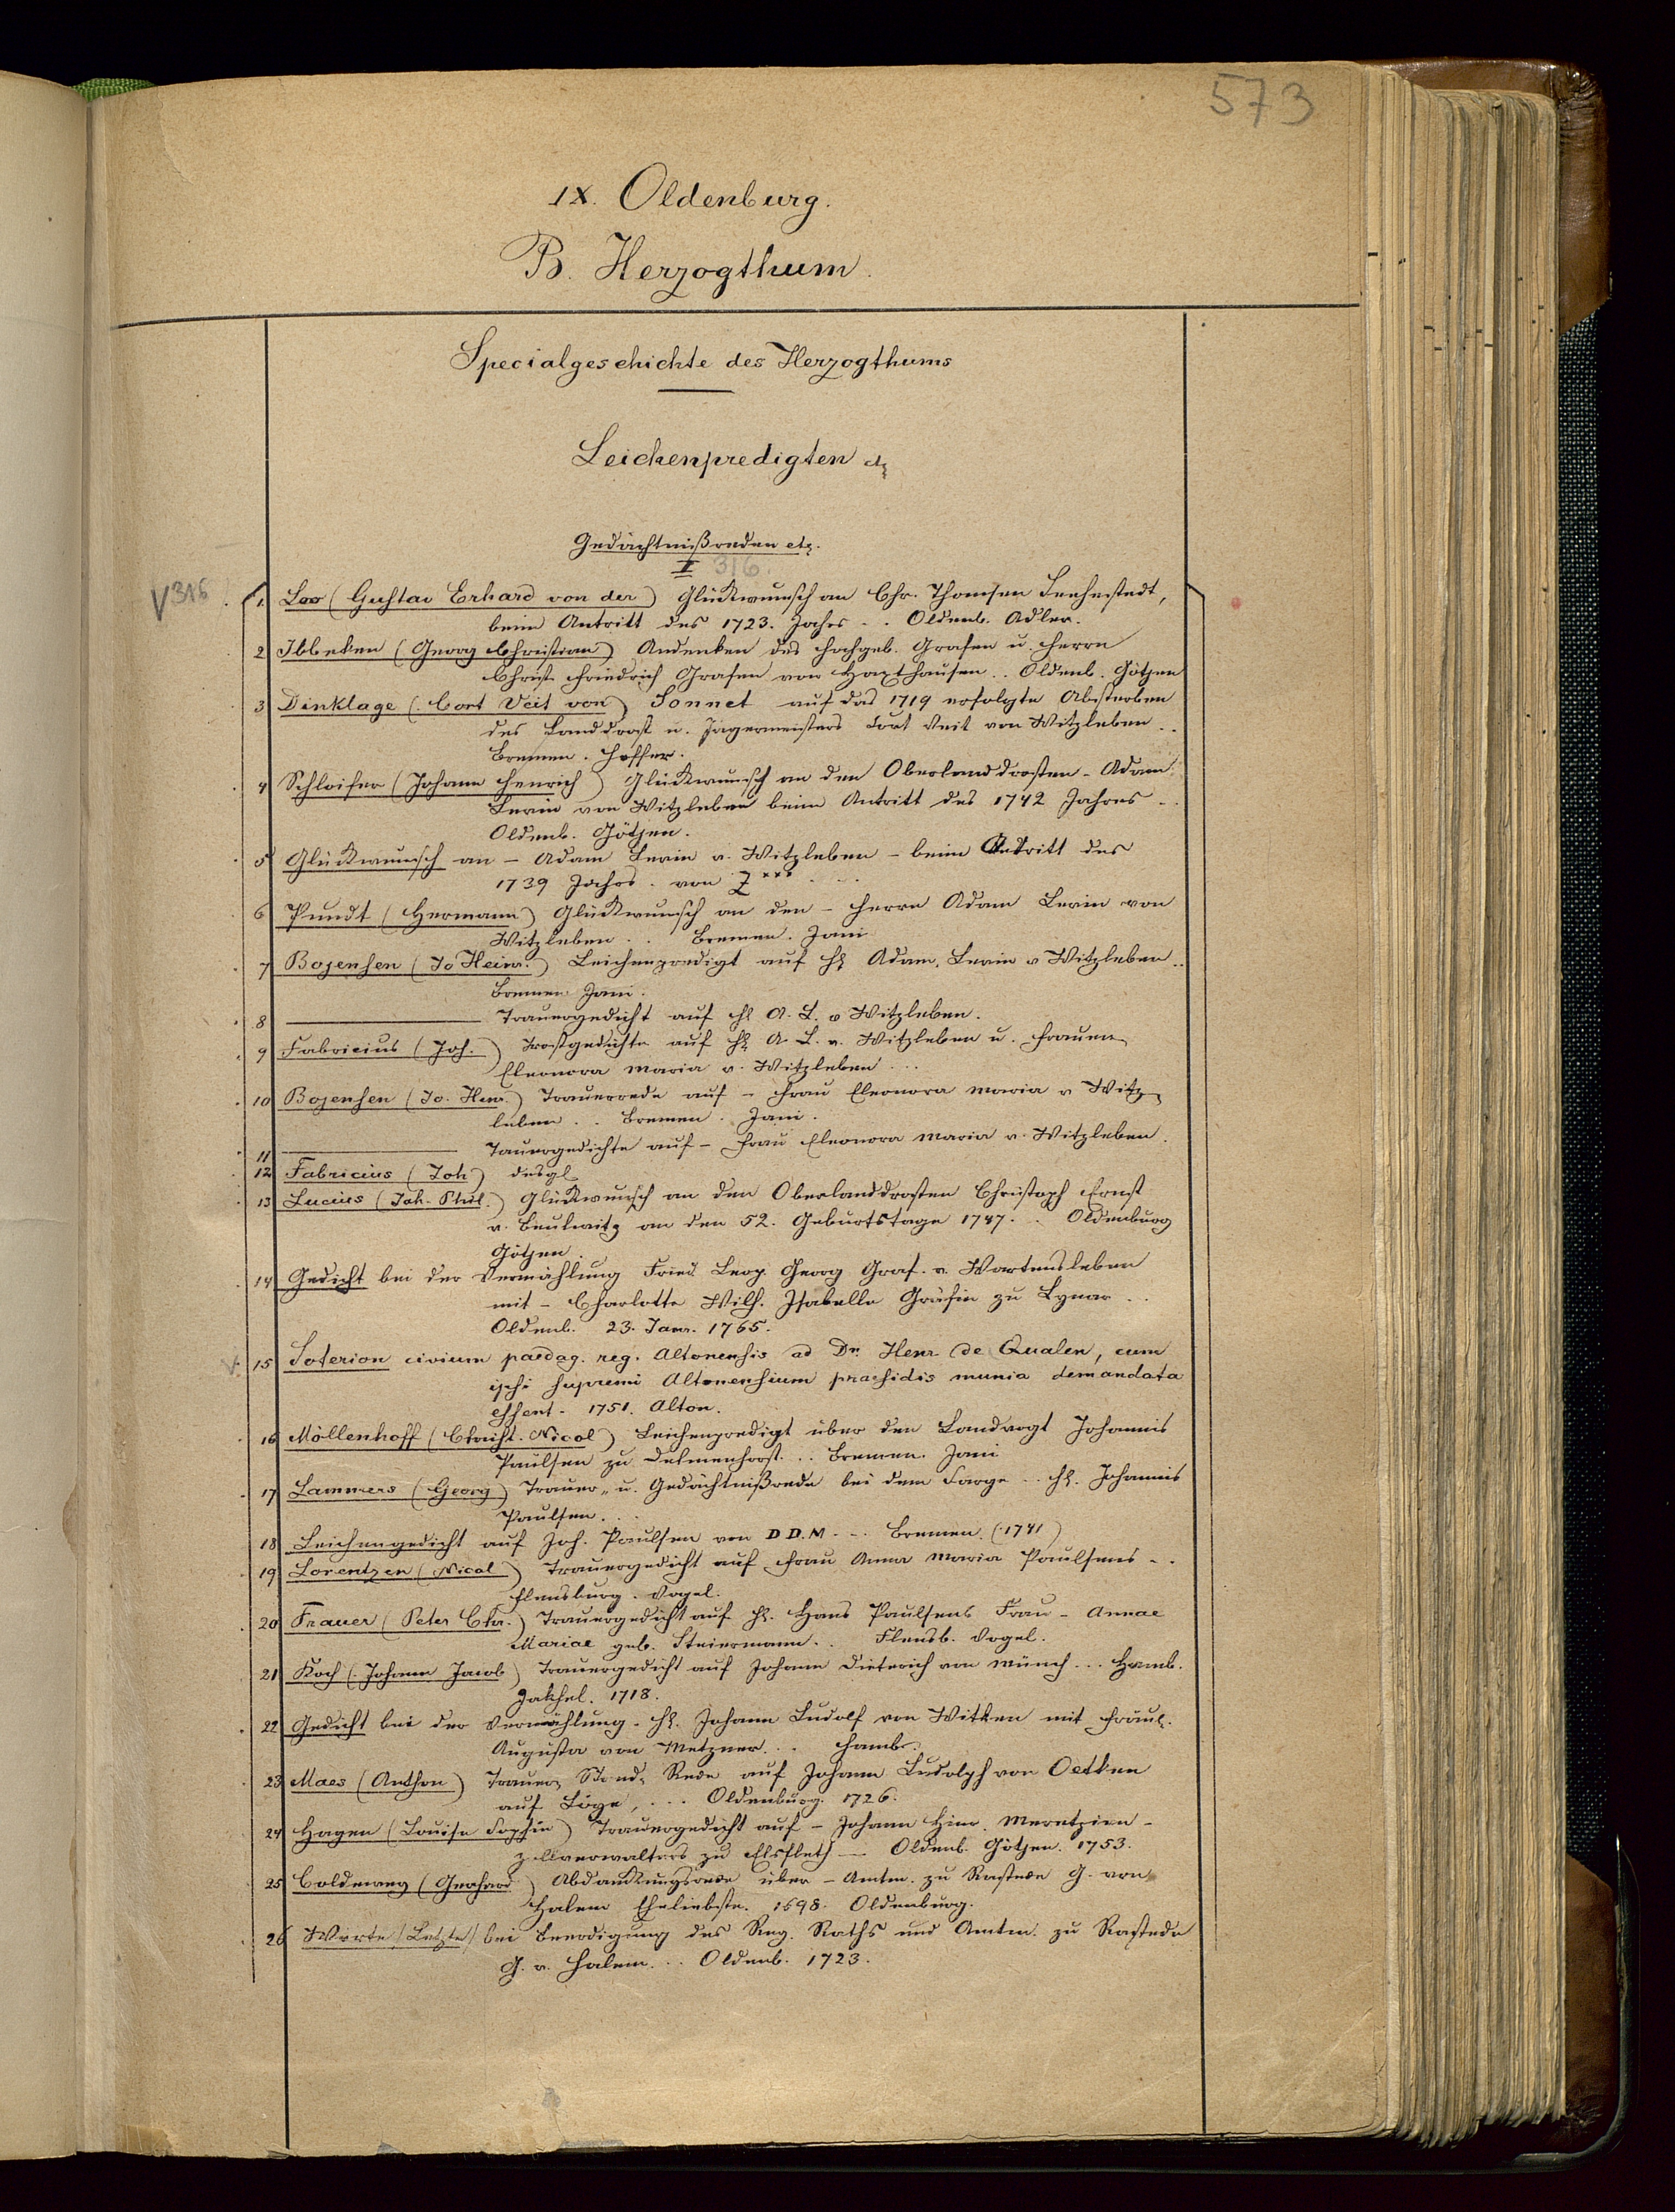 573
IX. Oldenburg.
B. Herzogthum.
Specialgeschichte des Herzogthums
Leichenpredigten etz
Gedächtnißreden etz.
I 316.
V 316
1. Loo (Gustav Erhard von der) Glückwunsch an Chr. Thomsen
beim Antritt des 1723. Jahrs . . Oldenb. Adler.
2 Ibbeken (Georg Christian) Andenken des Hochgeb. Grafen u. Herrn
Christ. Friedrich Grafen von Haxthausen . . Oldenb. Götjen
3 Dinklage (Cort Veit von) Sonnet auf das 1719 erfolgte Absterben
des Landdrost u. Jägermeisters Cort Veit von Witzleben . .
Bremen.
4 Schloifer (Johann Henrich) Glückwunsch an den Oberlanddrosten - Adam
Levin von Witzleben beim Antritt des 1742 Jahres . .
Oldenb. Götjen.
5 Glückwunsch an - Adam Levin v. Witzleben - beim Antritt des
1739 Jahrs. von Z*** . . .
6 Pundt (Hermann) Glückwunsch an den - Herrn Adam Levin von
Witzleben . . Bremen. Jani
7 Bojensen (Jo Heinr.) Leichenpredigt auf H Adam. Levin v Witzleben . .
Bremen Jani.
8 ——— Trauergedicht auf H A. L. v Witzleben.
9 Fabricius (Joh.) Trostgedichte auf H A. L. v. Witzleben u. Frauen
Eleonora Maria v. Witzleben . . .
10 Bojensen (Jo. Henr.) Trauerrede auf - Frau Eleonora Maria v Witz-
leben . . Bremen. Jani.
11 ——— Tauergedichte auf - Frau Eleonora Maria v. Witzleben.
12 Fabricius (Joh) desgl
13 Lucius (Joh. Phil.) Glückwunsch an den Oberlanddrosten Christoph Ernst
v. Beulwitz an den 52. Geburtstage 1747. . . Oldenburg
Götjen
14 Gedicht bei der Vermählung Fried. Leop. Georg Graf. v. Wartensleben
mit - Charlotte Wilh. Isabelle Gräfin zu Lynar . .
Oldenb. 23. Janr. 1765.
V. 15 Soterion civium paedag. reg. Altonensis ad Dn. Henr de Qualen, cum
ipsi supremi Altonensium praesidis munia demandata
essent. 1751. Alton.
16 Möllenhoff (Christ. Nicol) Leichenpredigt über den Landvogt Johannis
Paulsen zu Delmenhorst. . . Bremen. Jani
17 Lammers (Georg) Trauer- u. Gedächtnißrede bei dem Sarge . . H. Johannis
Paulsen. . .
18 Leichengedicht auf Joh. Paulsen von D D. M. . . Bremen. (1741)
19 Lorentzen (Nicol) Trauergedicht auf Frau Anna Maria Paulsens . .
Flensburg. Vogel.
20 Frauer (Peter Chr.) Trauergedicht auf H. Hans Paulsens Frau - Annae
Mariae geb. Steiermann. . Flensb. Vogel.
21 Koch (Johann Jacob) Trauergedicht auf Johann Dieterich von Münch . . . Hamb.
1718.
22 Gedicht bei der Vermählung - H. Johann Ludolf von Witken mit Fräul.
Augusta von Metzner. . . Hamb.
23 Maes (Anthon) Trauer- Stand- Rede auf Johann Ludolph von Oetken
auf Loye, . . . Oldenburg. 1726.
24 Hagen (Louise Sophie) Trauergedicht auf - Johann Hinr. Meretzien -
Zollverwalters zu Elsfleth — Oldenb. Götjen. 1753.
25 Coldewey (Gerhard) Abdankungsrede über - Amtm. zu Rastede G. von
Halem Eheliebste. 1698. Oldenburg.
26 Worte (Letzte) bei Beerdigung des Reg. Raths und Amtm. zu Rastede
G. v. Halem. . . Oldenb. 1723.